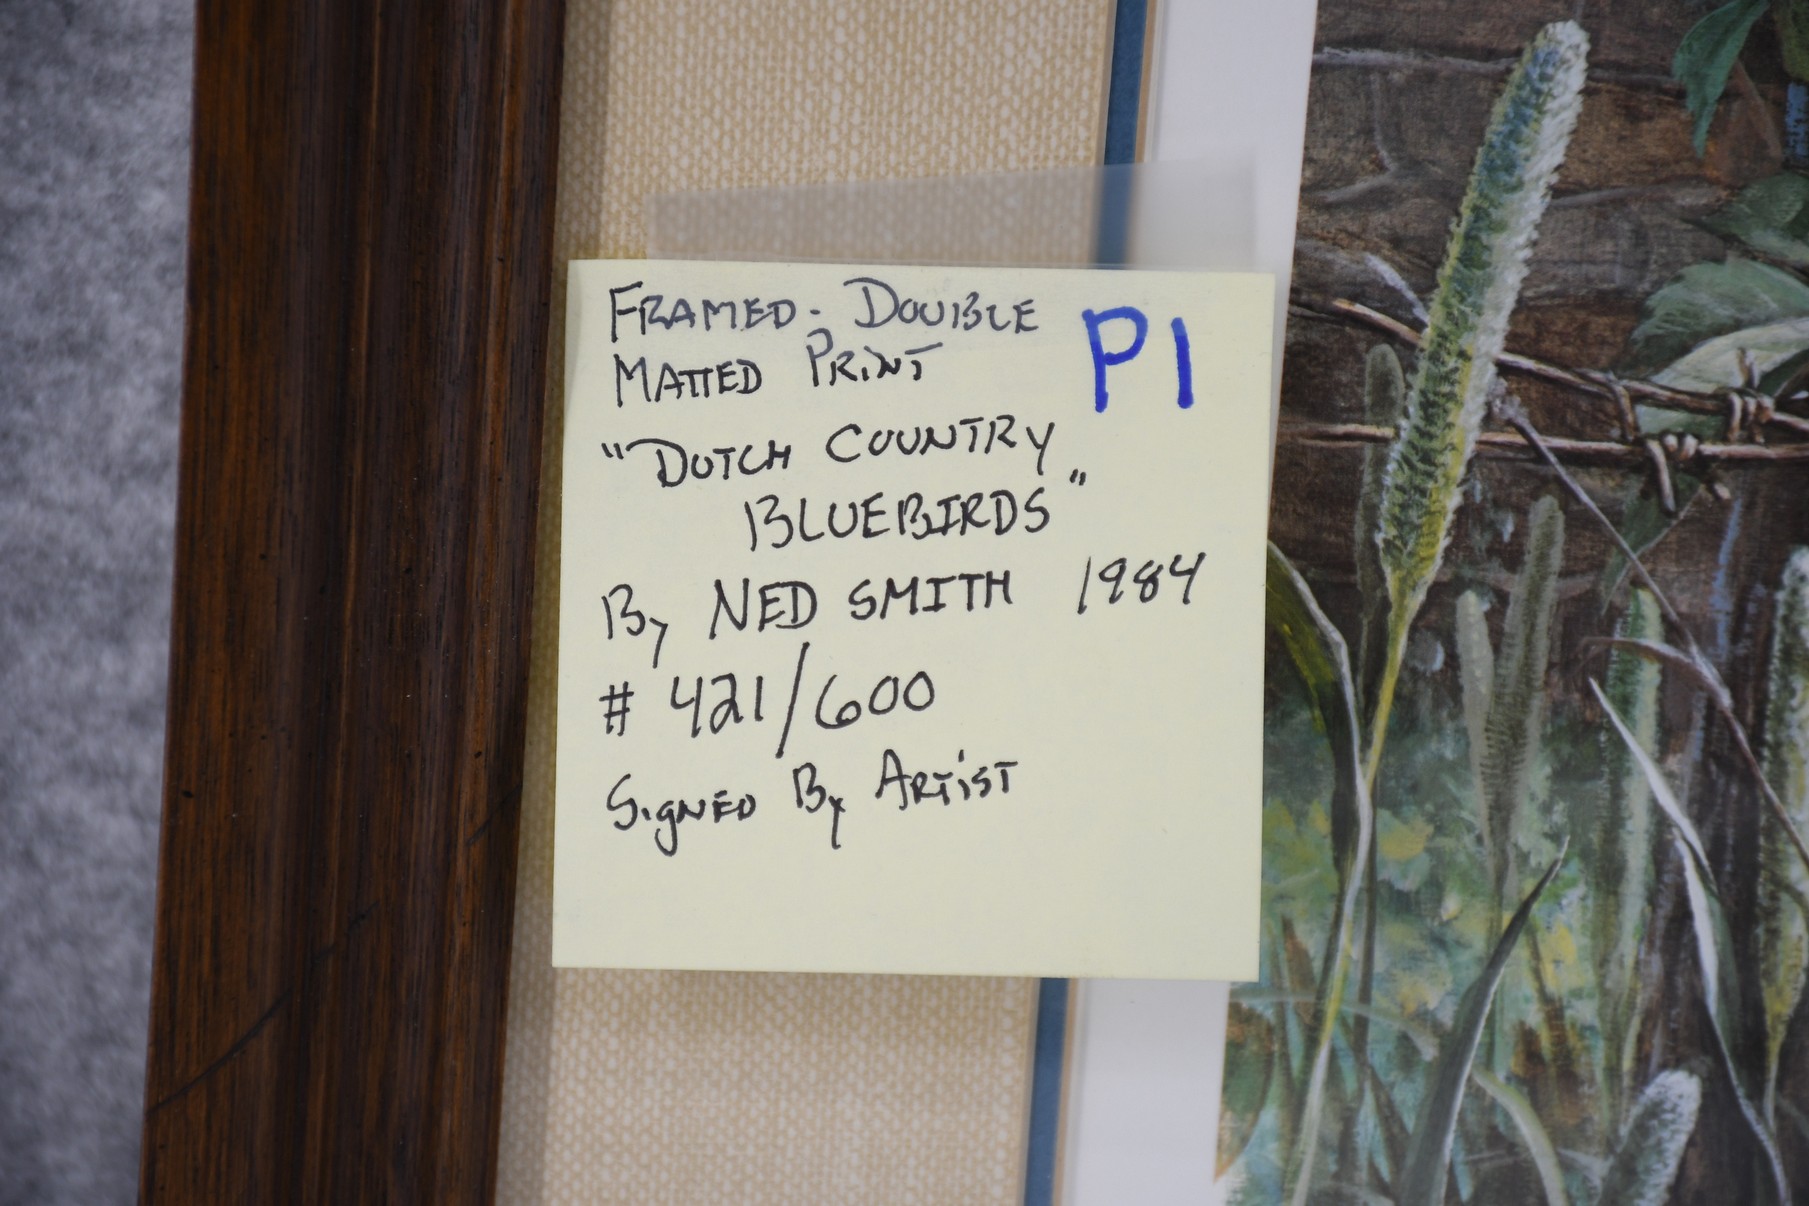 FRAMED - DOUBLE
MATTED PRINT
P1
"DUTCH COUNTRY
BLUEBIRDS"
By NED SMITH 1984
# 421/600
SIGNED By ARTIST